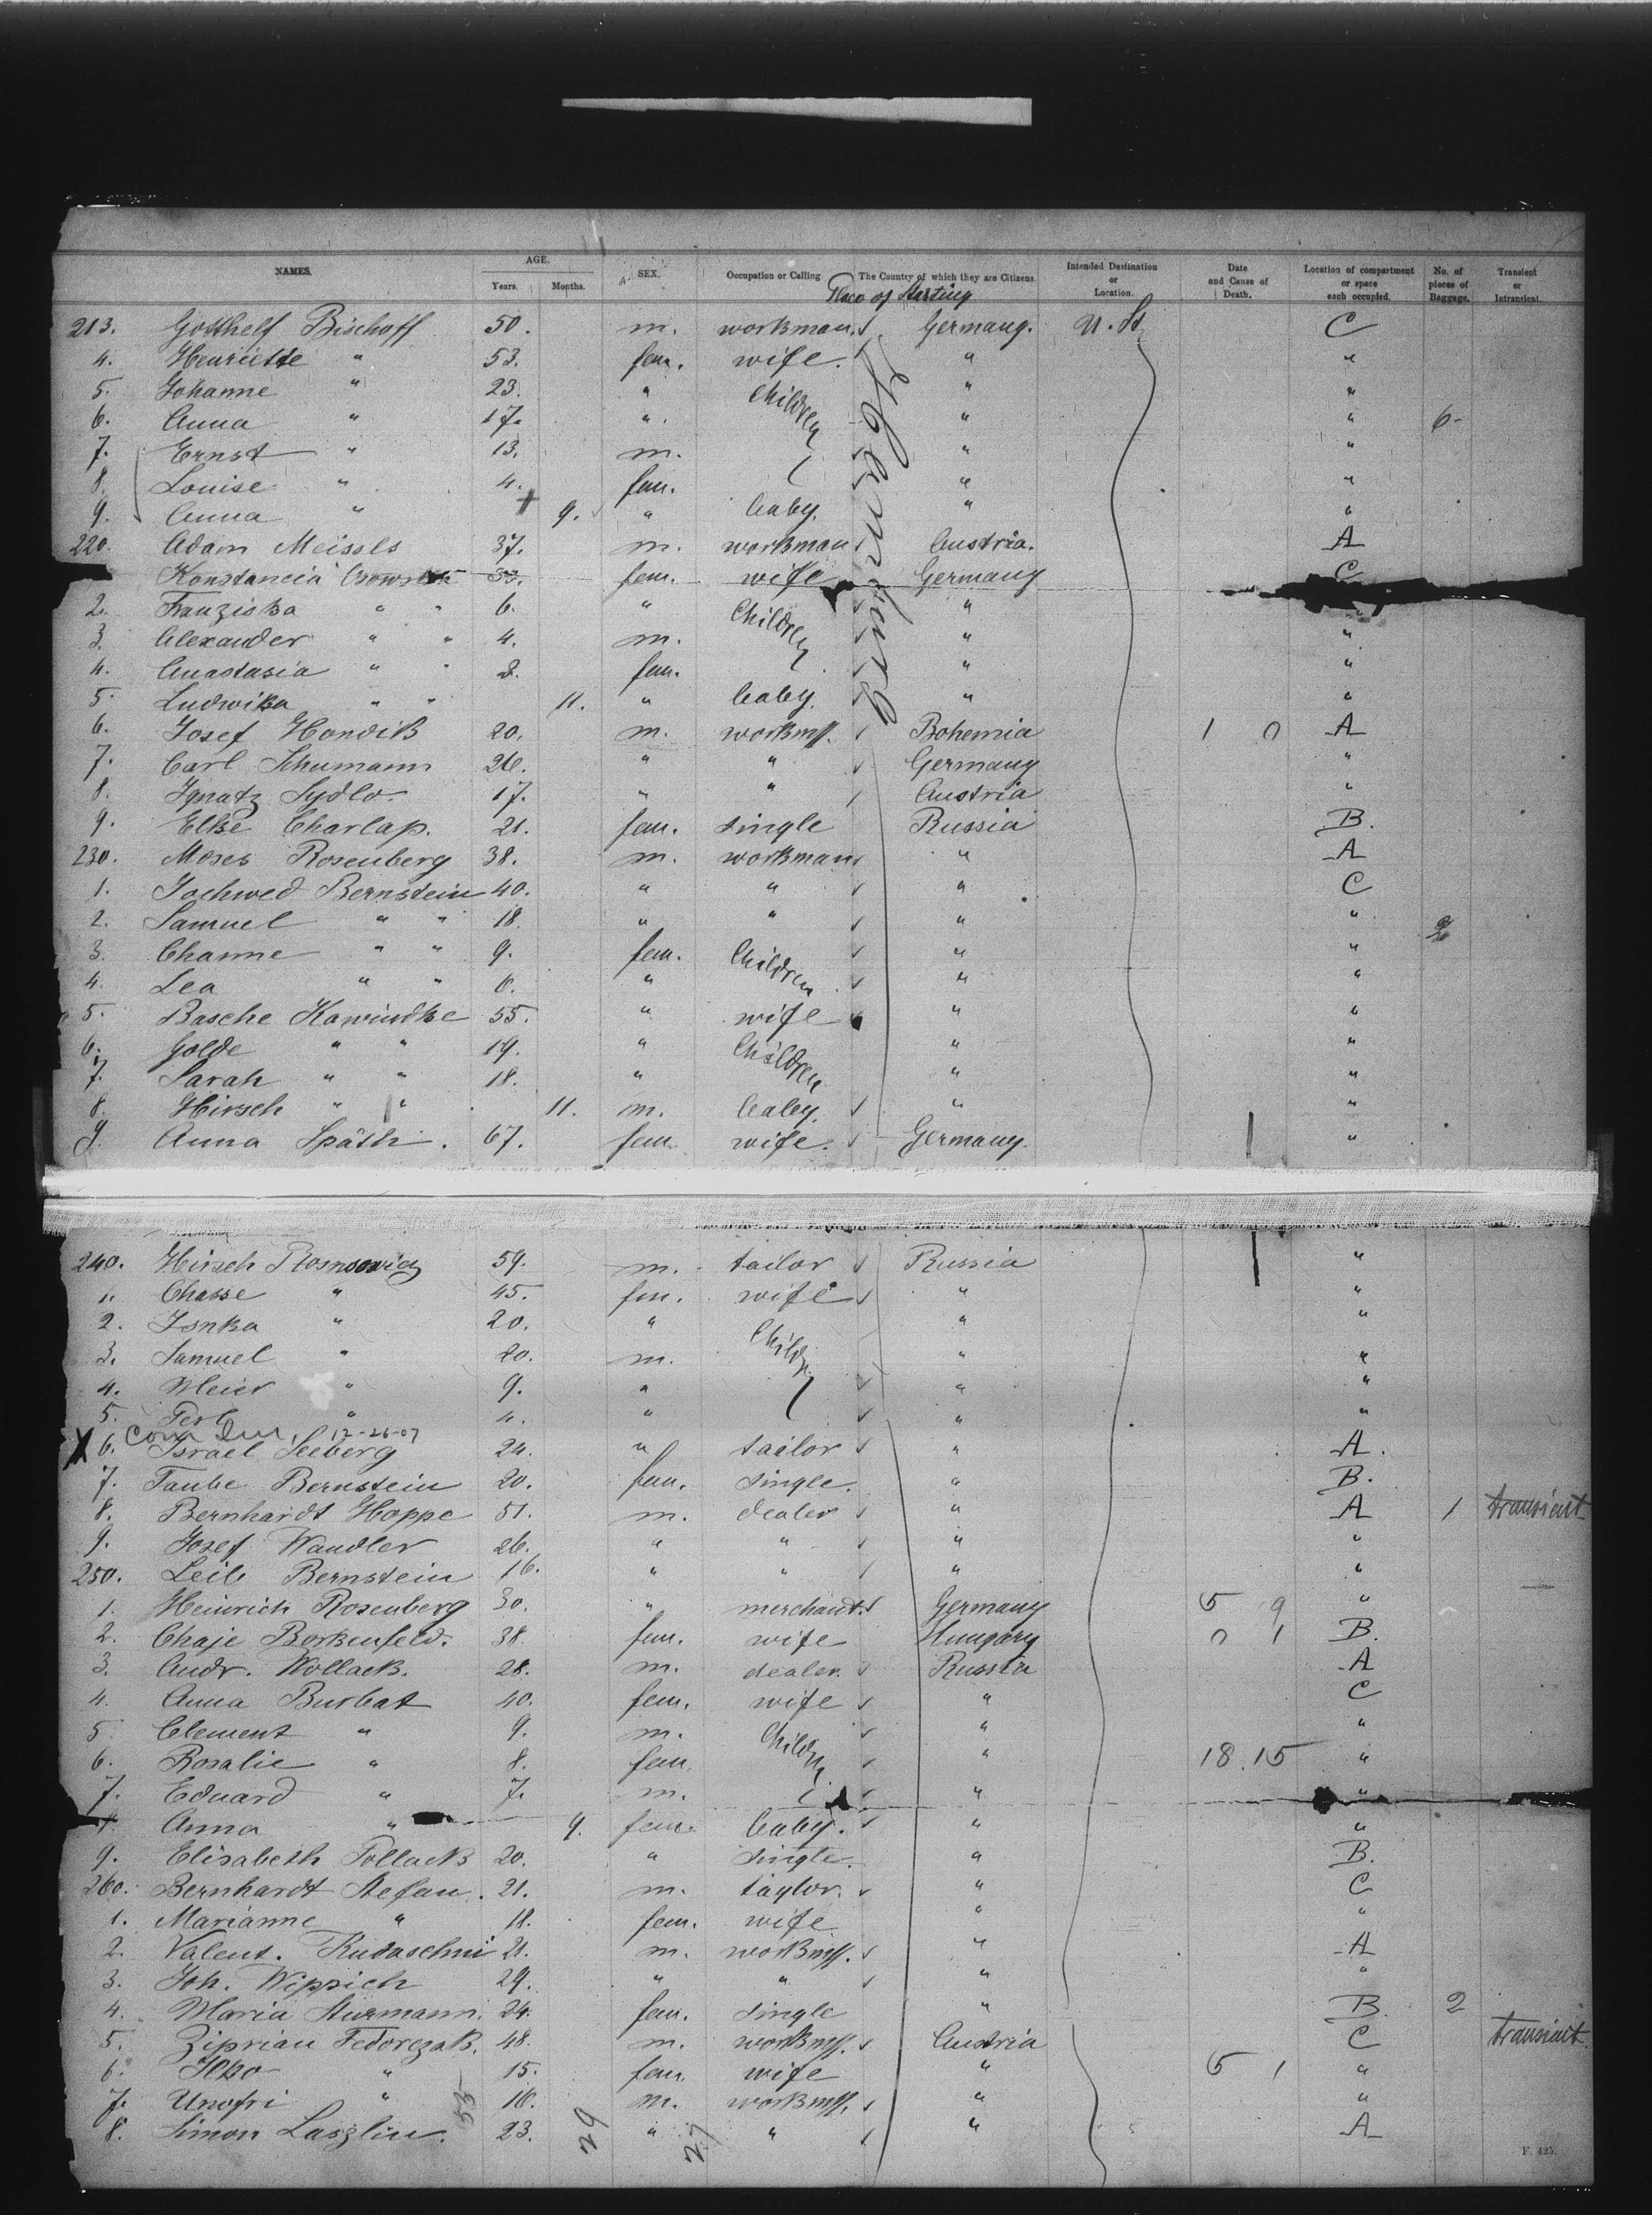 NAMES. AGE. Years. Months. SEX. Occupation or Calling. The Country of which they are Citizens. Intended Destination or Location. Date and Cause of Death. Location of compartment or space each occupied. No. of pieces of Baggage. Transient or Intransient.
Place of Starting
213. Gotthelf Bischoff 50. m. workman. Germany. U. St C
4. Henriette " 53. fem. wife. " "
5. Johanne " 23. " Children " "
6. Anna " 17. " " " 6
7. Ernst " 13. m. " "
8. Louise " 4. fem. " "
9. Anna " 9. " baby. " "
220. Adam Meissls 37. m. workman Austria. A
Konstancia 33. fem. wife Germany C
2. Franziska " " 6. " Children " "
3. Alexander " " 4. m. " "
4. Anastasia " " 2. fem. " "
5. Ludwika " " 11. " baby. " "
6. Josef Hondik 20. m. workmn. Bohemia 1 0 A
7. Carl Schumann 26. " " Germany "
8. Ignatz Sydlo. 17. " " Austria "
9. Elke Charlap. 21. fem. single Russia B.
230. Moses Rosenberg 38. m. workman " A
1. Jochwed Bernstein 40. " " " C
2. Samuel " " 18. " " " " 2
3. Channe " " 9. fem. Children " "
4. Lea " " 6. " " "
5. Basche Kawindke 55. " wife " "
6. Golde " " 19. " Children " "
7. Sarah " " 18. " " "
8. Hirsch " " 11. m. baby. " "
9. Anna Späth. 67. fem. wife. Germany. "
240. Hirsch 59. m. tailor Russia "
1. Chasse " 45. fem. wife " "
2. " 20. " Childr. " "
3. Samuel " 20. m. " "
4. Meier " 9. " " "
5. " 4. " " "
12-26-07
X 6. Israel Seeberg 24. " tailor " A.
7. Taube Bernstein 20. fem. single. " B.
8. Bernhardt Hoppe 51. m. dealer " A 1 transient
9. Josef Wandler 26. " " " "
250. Leib Bernstein 16. " " " "
1. Heinrich Rosenberg 30. " merchant. Germany 5 9 "
2. Chaje Borkenfeld. 38 fem. wife Hungary 0 1 B.
3. Andr. Wollack. 28. m. dealer. Russia A
4. Anna Burbat 40. fem. wife " C
5. Clement " 9. m. Childr. " "
6. Rosalie " 8. fem. " 18.15 "
7. Eduard " 7. m. " "
8. Anna " 9. fem. baby. " "
9. Elisabeth Pollack 20. " single. " B.
260. Bernhardt Stefan. 21. m. taylor. " C
1. Marianne " 18. fem. wife " "
2. Valent. 21. m. workmn. " A
3. Joh. Wippich 29. " " " "
4. Maria Sturmann. 24. fem. single " B. 2
5. Ziprian Fedorczak. 48. m. workmn. Austria C transient
6. " 15. fem. wife " 5 1 "
7. Unofri " 16. m. workmn. " "
8. Simon Laszlin. 23. " " " A
Germany
55 29 27
F. 425.